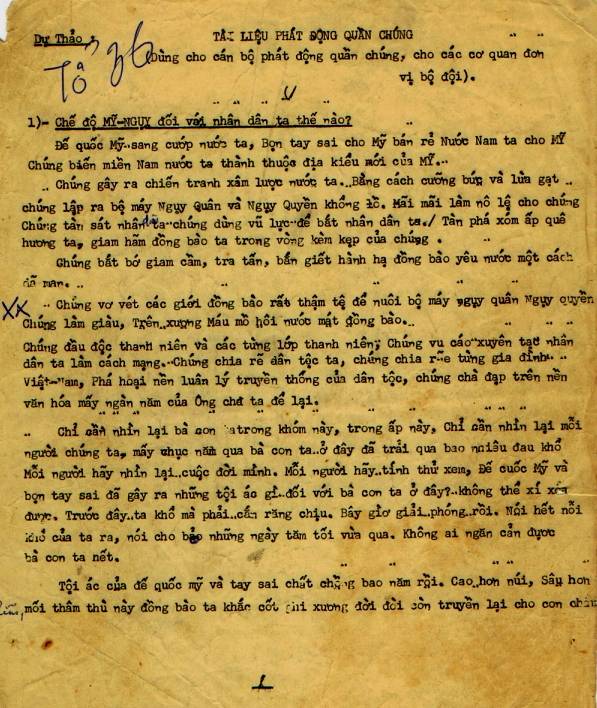 Dự Thảo : TÀI LIỆU PHÁT ĐỘNG QUẦN CHÚNG
Tổ 96
(Dùng cho cán bộ phát động quần chúng, cho các cơ quan đơn
vị bộ đội).
1)- Chế độ MỸ-NGỤY đối với nhân dân ta thế nào?
Đế quốc Mỹ sang cướp nước ta, Bọn tay sai cho Mỹ bán rẻ Nước Nam ta cho MỸ
Chúng biến miền Nam nước ta thành thuộc địa kiểu mới của MỸ.
Chúng gây ra chiến tranh xâm lược nước ta. Bằng cách cưỡng bức và lừa gạt
chúng lập ra bộ máy Ngụy Quân và Ngụy Quyền khổng lồ. Mãi mãi làm nô lệ cho chúng
Chúng tàn sát nhân dân ta chúng dùng vũ lực để bắt nhân dân ta./ Tàn phá xóm ấp quê
hương ta, giam hãm đồng bào ta trong vòng kềm kẹp của chúng .
Chúng bắt bớ giam cầm, tra tấn, bắn giết hành hạ đồng bào yêu nước một cách
dã man.
XX Chúng vơ vét các giới đồng bào rất thậm tệ để nuôi bộ máy ngụy quân Ngụy quyền
Chúng làm giàu, Trên xương Máu mồ hôi nước mắt đồng bào.
Chúng đầu độc thanh niên và các từng lớp thanh niên; Chúng vu cáo xuyên tạc nhân
dân ta làm cách mạng. Chúng chia rẽ dân tộc ta, chúng chia rẽ từng gia đình
Việt-Nam, Phá hoại nền luân lý truyền thống của dân tộc, chúng chà đạp trên nền
văn hóa mấy ngàn năm của Ông cha ta để lại.
Chỉ cần nhìn lại bà con ta trong khóm này, trong ấp này, Chỉ cần nhìn lại mỗi
người chúng ta, mấy chục năm qua bà con ta ở đây đã trải qua bao nhiêu đau khổ
Mỗi người hãy nhìn lại cuộc đời mình. Mỗi người hãy tính thử xem, Đế cuốc Mỹ và
bọn tay sai đã gây ra những tội ác gì đối với bà con ta ở đây? không thể xí xóa
được. Trước đây ta khổ mà phải cắn răng chịu. Bây giờ giải phóng rồi. Nói hết nỗi
khổ của ta ra, nói cho bảo những ngày tăm tối vừa qua. Không ai ngăn cản được
bà con ta nết.
Tội ác của đế quốc mỹ và tay sai chất chồng bao năm rồi. Cao hơn núi, Sâu hơn
mối thâm thù này đồng bào ta khắc cốt ghi xương đời đời còn truyền lại cho con cháu
1